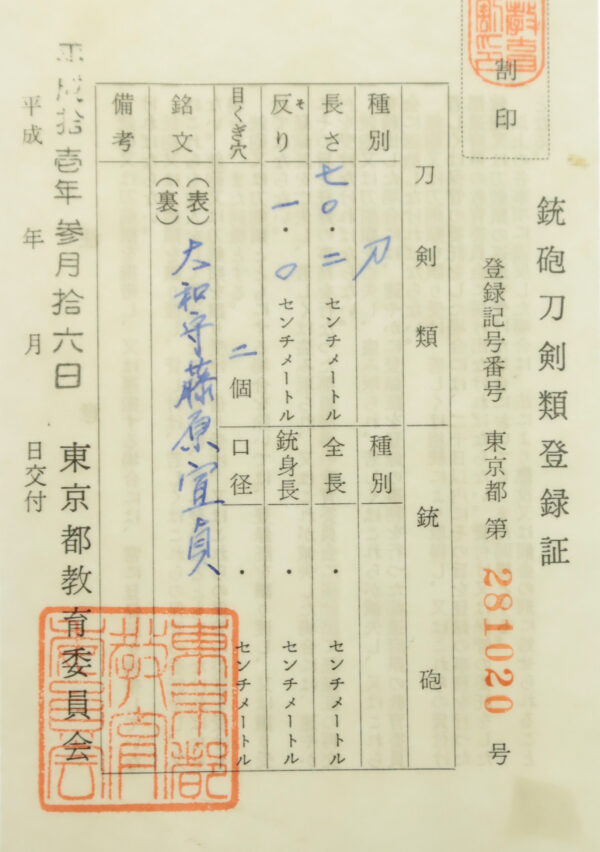 割印
銃砲刀剣類登録証
登録記号番号 東京都 第 281020 号
刀剣類 銃砲
種別 刀 種別
長さ 七〇・二 センチメートル 全長 ・ センチメートル
反り そ 一・〇 センチメートル 銃身長 ・ センチメートル
目くぎ穴 二個 口径 ・ センチメートル
銘文 (表) 大和守藤原宣貞
(裏)
備考
平成拾壱年参月拾六日
平成 年 月 日交付
東京都教育委員会
東京都
教育
委員会